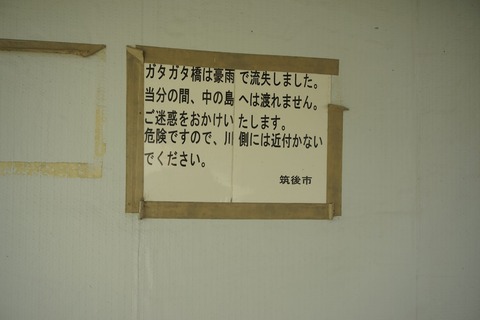 ガタガタ橋は豪雨で流失しました。
当分の間、中の島へは渡れません。
ご迷惑をおかけいたします。
危険ですので、川側には近付かない
でください。
筑後市